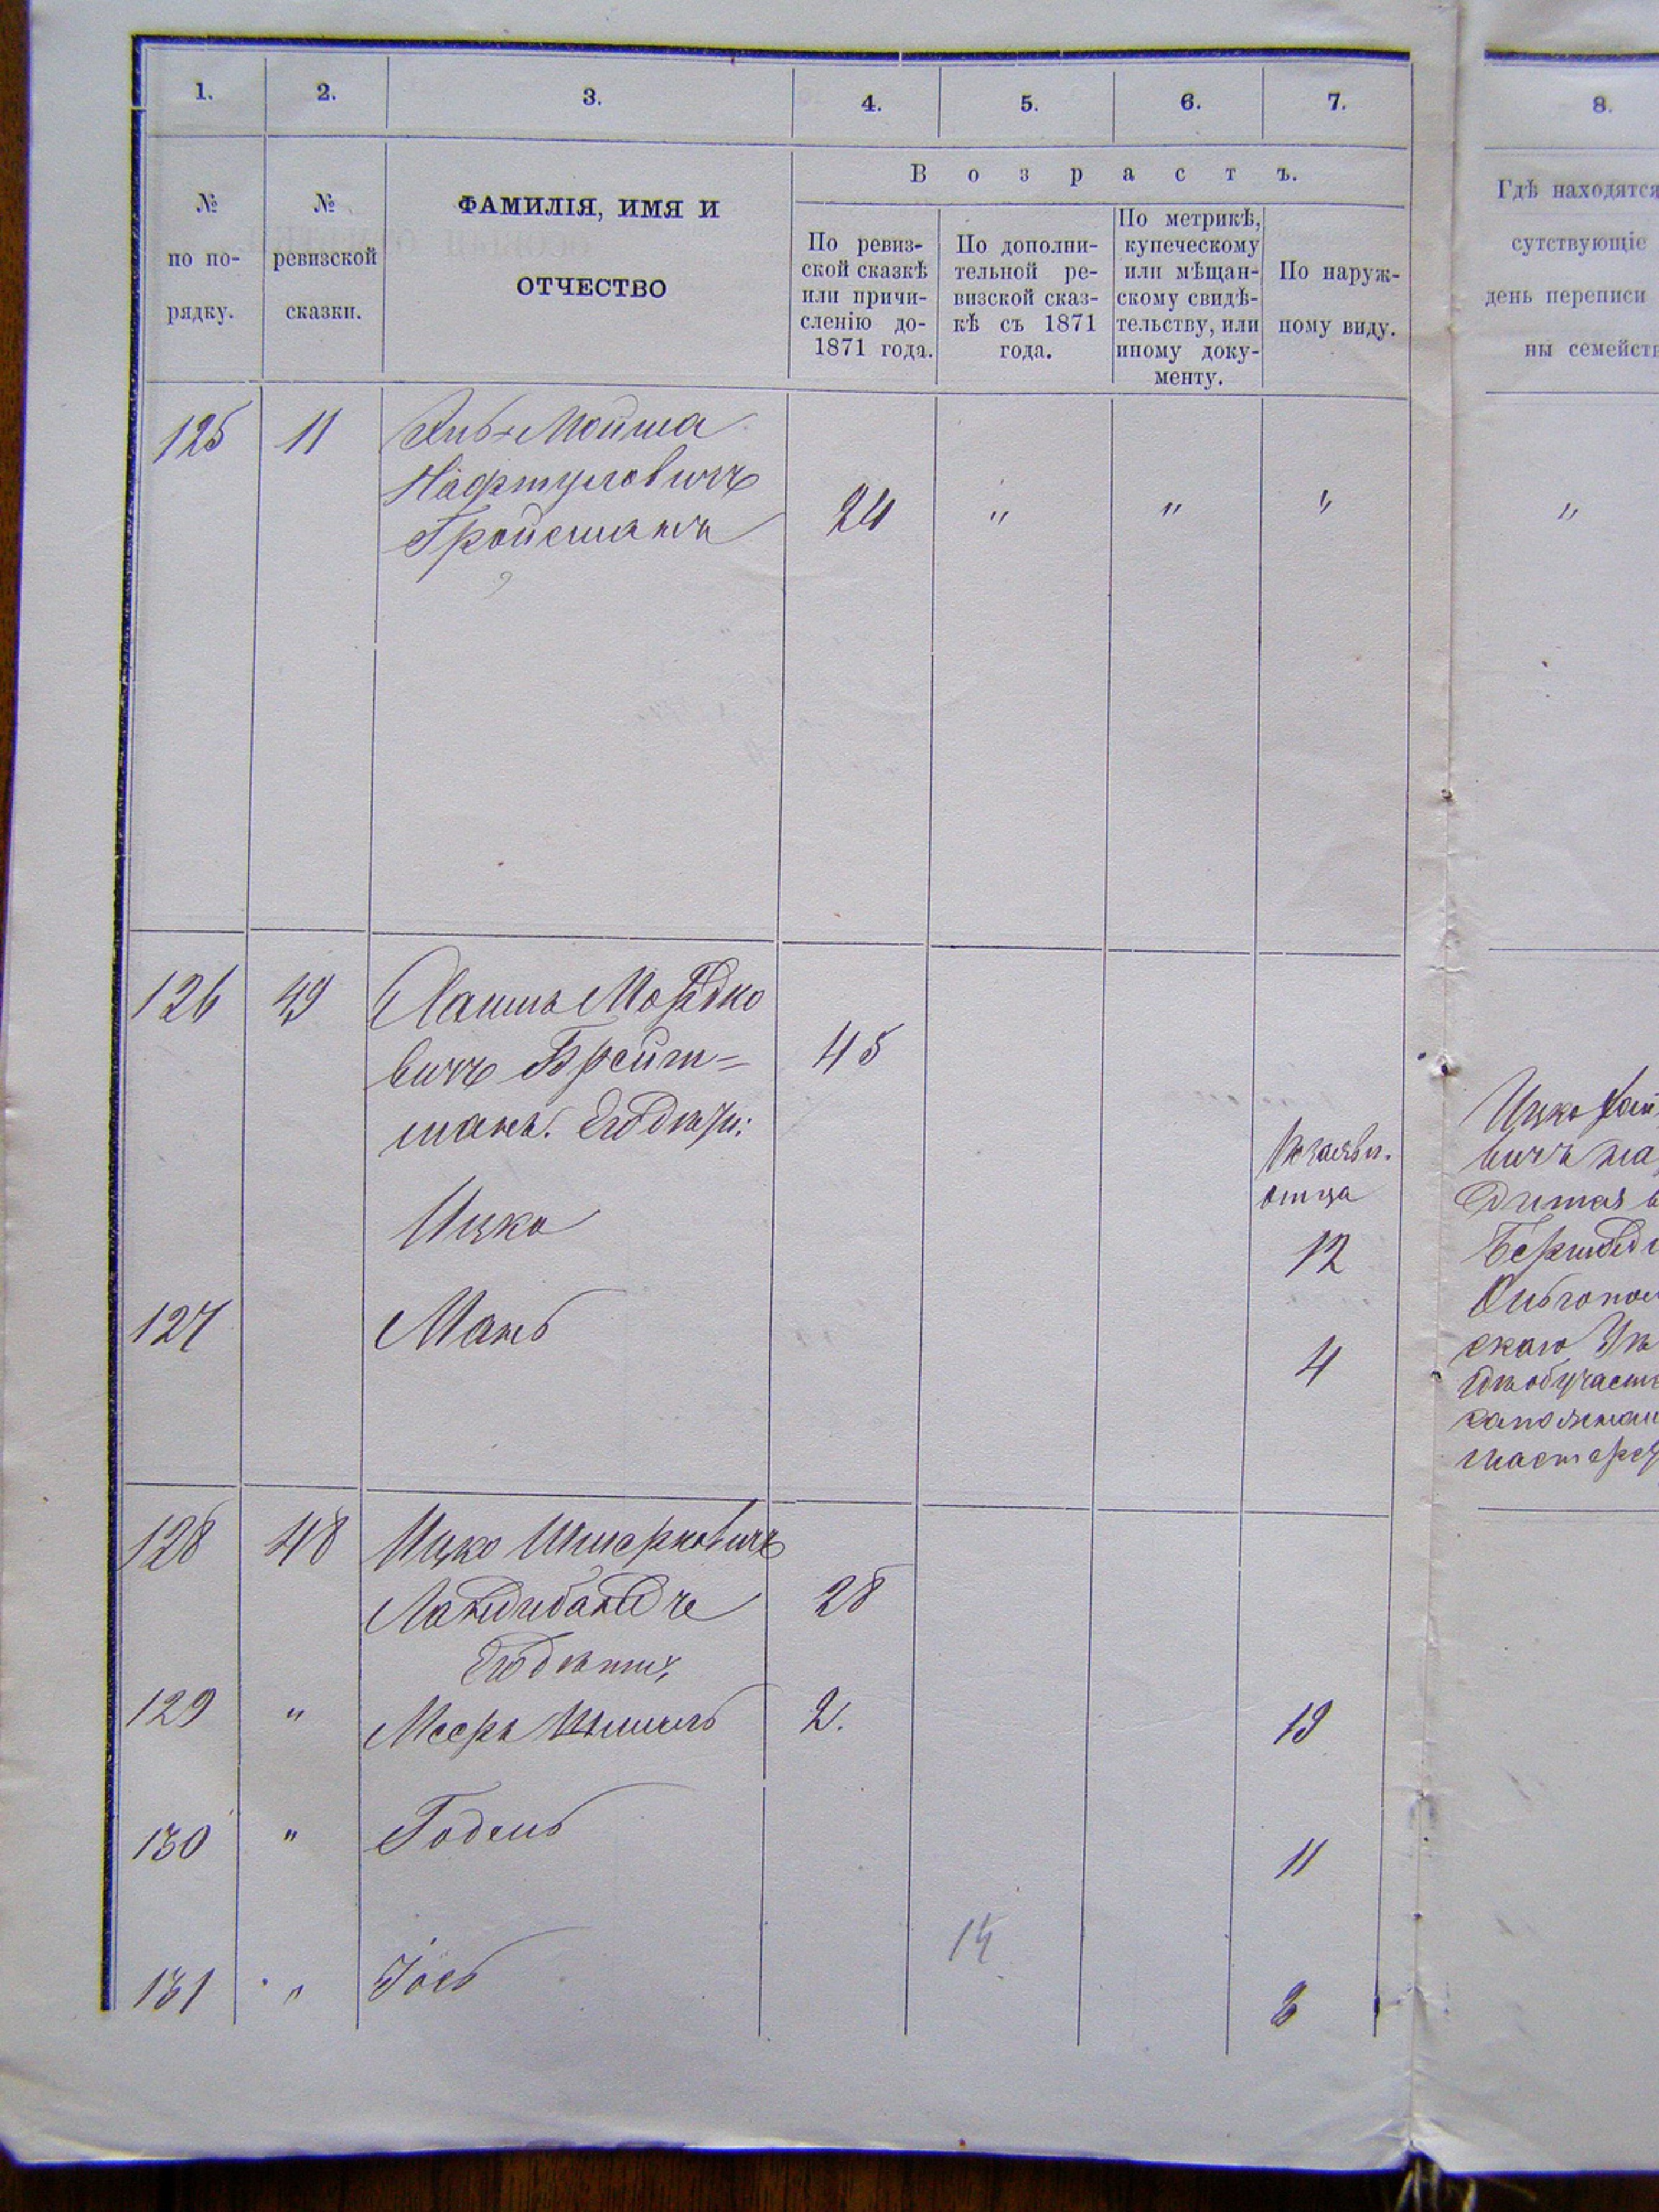 1. 2. 3. 4. 5. 6. 7. 8.
№ по по-рядку.
№ ревизской сказки.
ФАМИЛІЯ, ИМЯ И
ОТЧЕСТВО
В о з р а с т ъ.
По ревиз-
ской сказкѣ
или причи-
сленію до-
1871 года.
По дополни-
тельной ре-
визской сказ-
кѣ съ 1871
года.
По метрикѣ,
купеческому
или мѣщан-
скому свидѣ-
тельству, или
иному доку-
менту.
По наруж-
ному виду.
Гдѣ находятся
сутствующіе
день переписи
ны семейств
125 11 Мойша
Нафтуловичъ
Гройсманъ 24 " " " "
126 49 Мордко
вичъ Брейт= 45
манъ. Его дѣти:
отца
Ицко 12
127 Мань 4
Ицко
вичъ
Бершадь
скаго
128 48 Ицко Шмерковичъ
28
Его дѣти:
129 " Мееръ 2. 19
130 " Годель 11
14
131 " Іось 3